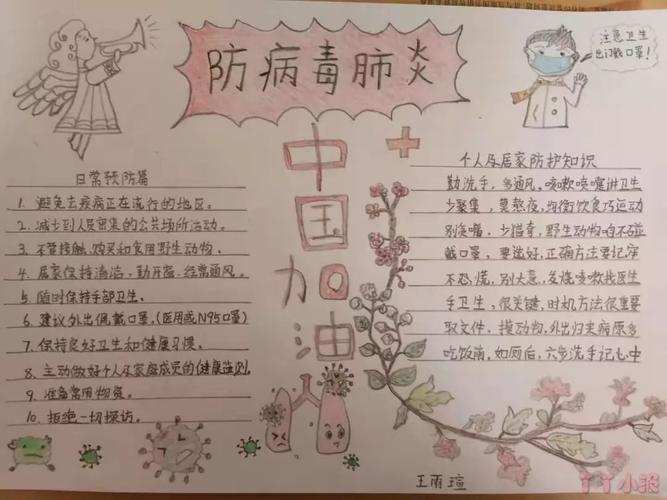 防病毒肺炎
注意卫生
出门戴口罩!
中国加油
日常预防篇
1. 避免去疾病正在流行的地区。
2. 减少到人员密集的公共场所活动。
3. 不要接触、购买和食用野生动物。
4. 居家保持清洁,勤开窗,经常通风。
5. 随时保持手部卫生。
6. 建议外出佩戴口罩。(医用或N95口罩)
7. 保持良好卫生和健康习惯。
8. 主动做好个人及家庭成员的健康监测。
9. 准备常用物资。
10. 拒绝一切探访。
个人及居家防护知识
勤洗手,多通风,咳嗽喷嚏讲卫生
少聚集,莫熬夜,均衡饮食巧运动
别侥幸,少猎奇,野生动物咱不碰
戴口罩,要选好,正确方法要记牢
不恐慌,别大意,发烧咳嗽找医生
手卫生,很关键,时机方法很重要
取文件,摸动物,外出归来病原多
吃饭前,如厕后,六步洗手记心中
王雨瑄
丫丫小报